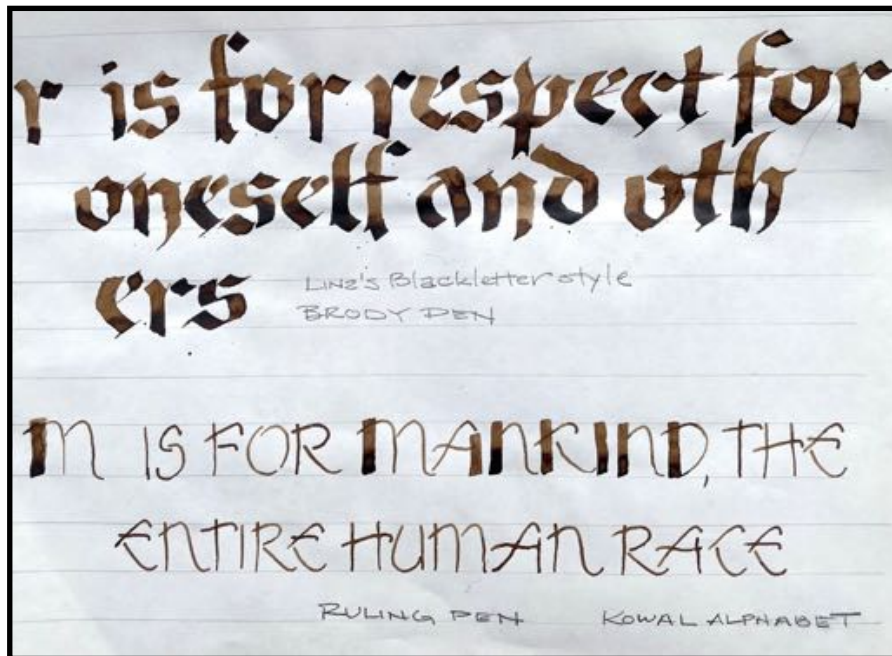 r is for respect for
oneself and oth
ers
LINZ's Blackletter style
BRODY PEN
M IS FOR MANKIND, THE
ENTIRE HUMAN RACE
RULING PEN KOWAL ALPHABET